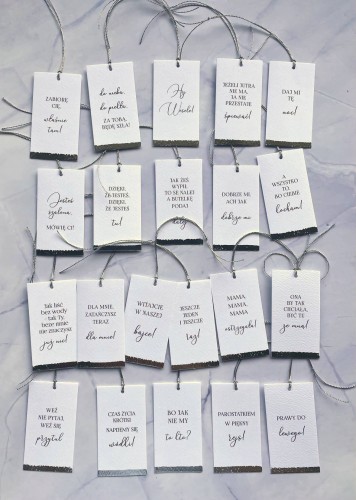 ZABIORĘ
CIĘ,
właśnie
tam!
do nieba,
do piekła,
ZA TOBĄ,
BĘDĘ SZŁA!
Hej
Wesele!
JEŻELI JUTRA
NIE MA,
JA NIE
PRZESTAJĘ
śpiewać!
DAJ MI
TĘ
noc!
Jesteś
szalona,
MÓWIĘ CI!
DZIĘKI,
ŻE JESTEŚ,
DZIĘKI,
ŻE JESTEŚ
tu!
JAK ŻEŚ
WYPIŁ
TO SE NALEJ
A BUTELKĘ
PODAJ
DOBRZE MI
ACH JAK
dobrze mi
A
WSZYSTKO
TO,
BO CIEBIE
kocham!
Jak liść
bez wody
- tak Ty
beze mnie
nie znaczysz
już nic!
DLA MNIE,
ZATAŃCZYSZ
TERAZ
dla mnie!
WITAJCIE
W NASZEJ
bajce!
JESZCZE
JEDEN
I JESZCZE
raz!
MAMA
MAMA,
MAMA
ostrzegała!
ONA
BY TAK
CHCIAŁA,
BYĆ TE
ze mną!
WEŹ
NIE PYTAJ,
WEŹ SIĘ
przytul
CZAS ŻYCIA
KRÓTKI
NAPIJMY SIĘ
wódki!
BO JAK
NIE MY
to kto?
PAROSTATKIEM
W PIĘKNY
rejs!
PRAWY DO
lewego!